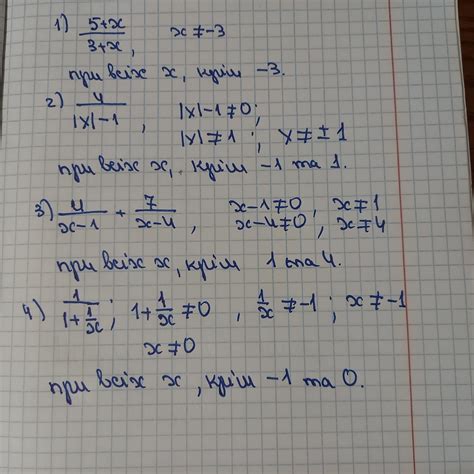 1) (5+x)/(3+x), x ≠ -3
при всіх x, крім -3.
2) 4/(|x|-1), |x|-1 ≠ 0;
|x| ≠ 1; x ≠ ± 1
при всіх x, крім -1 та 1.
3) 4/(x-1) + 7/(x-4) x-1 ≠ 0, x ≠ 1
x-4 ≠ 0, x ≠ 4
при всіх x, крім 1 та 4.
4) 1/(1+1/x); 1+1/x ≠ 0, 1/x ≠ -1; x ≠ -1
x ≠ 0
при всіх x, крім -1 та 0.